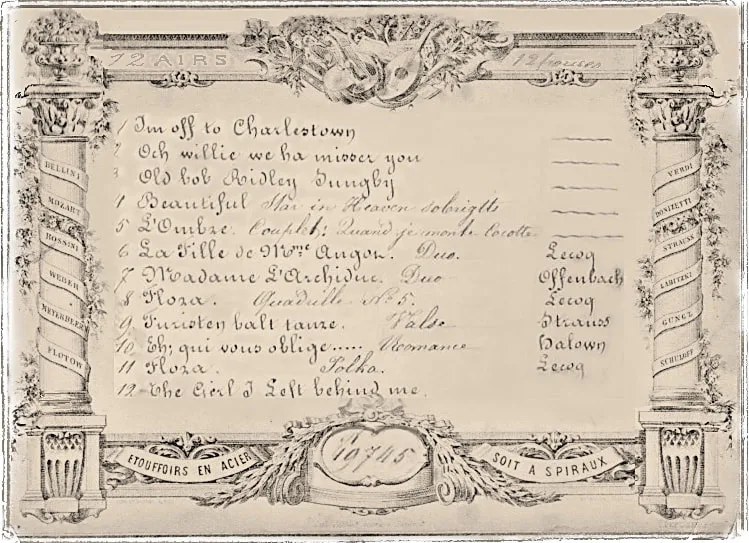 12 AIRS 12 pouces
1 I'm off to Charlestown
2 Och willie we ha misser you
3 Old bob Ridley Jungby
4 Beautiful Star in Heaven sobrigtts
5 L'Ombre. Couplets: Quand je monte Cocotte
6 La Fille de Mme Angon. Duo. Lecoq
7 Madame L'Archiduc. Duo Offenbach
8 Floza. Quadrille No 5. Lecoq
9 Furisten balt tanze. Valse Strauss
10 Eh; qui vous oblige..... Romance Dalown
11 Floza. Polka. Lecoq
12 The Gerl I Left behind me.
BELLINI
MOZART
ROSSINI
WEBER
MEYERBEER
FLOTOW
VERDI
DONIZETTI
STRAUSS
LABITZKI
GUNGL
SCHULHOFF
ETOUFFOIRS EN ACIER
19745
SOIT A SPIRAUX